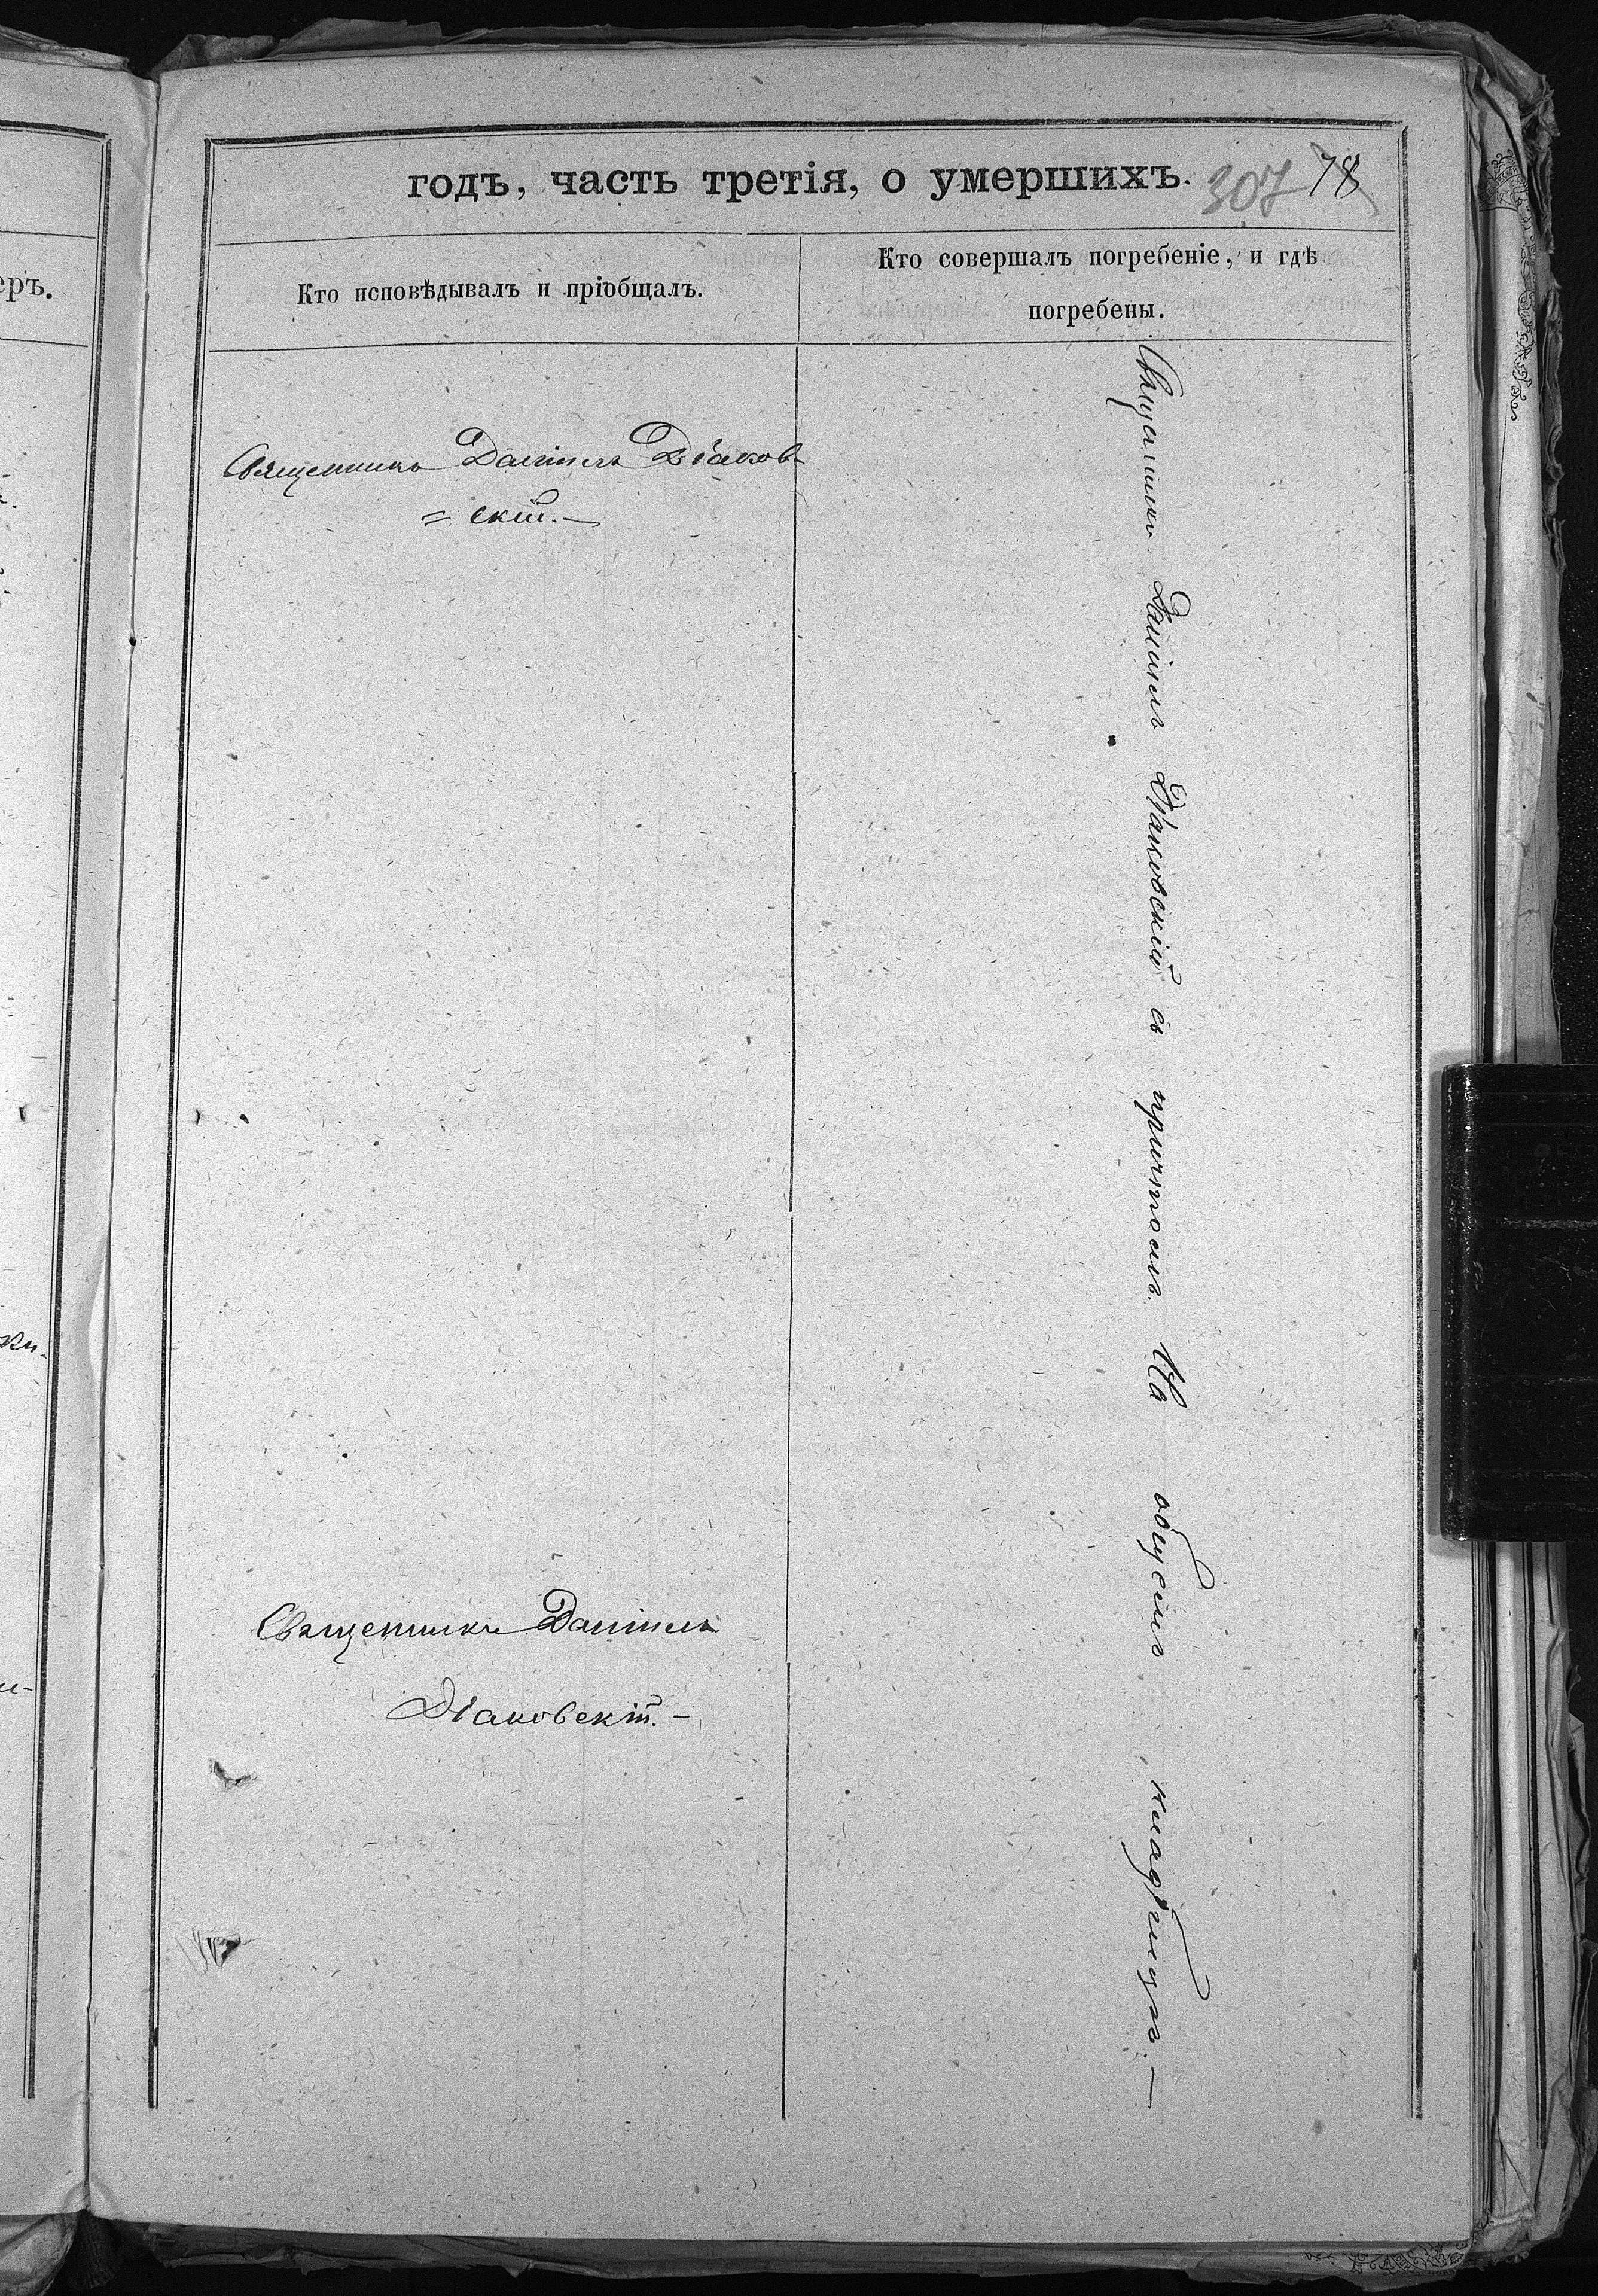 годъ, часть третія, о умершихъ.
307 78
Кто исповѣдывалъ и пріобщалъ.
Кто совершалъ погребеніе, и гдѣ
погребены.
еръ.
Священникъ Даніилъ Діаков
= скій. —
Священникъ Даніилъ
Діаковскій. —
Священникъ Даніилъ Діаковскій съ причтомъ. На общемъ кладбищѣ. —